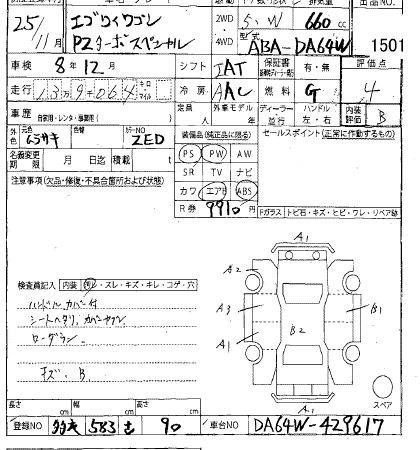 25/11月 エブリイワゴン PZターボスペシャル 2WD・4WD 5・W 660cc 型式 ABA-DA64W 1501
車検 8年12月 シフト IAT 保証書 有・無 評価点
走行 139064 キロ・マイル 冷房 AAC 燃料 G 4
車歴 自家用・レンタ・事業用( ) 定員 人 外車モデル ディーラー 並行 ハンドル 左・右 内装評価 B
外色 元色 ムラサキ 色替 カラーNO ZED 装備品(純正品に限る) セールスポイント(正常に作動するもの)
名義変更期限 月 日迄 積載 t PS PW AW
注意事項(欠品・修復・不具合箇所および状態) SR TV ナビ
カワ エアB ABS
R券 9910円 Fガラス トビ石・キズ・ヒビ・ワレ・リペア跡
A1
A2
検査員記入 内装 汚レ・スレ・キズ・キレ・コゲ・穴
ハンドルカバー付 A3 B1
シートヘタリ B2
ローダウン A1
キズ B
A1 スペア
長さ cm 幅 cm 高さ cm
登録NO 583 90 車台NO DA64W-429617